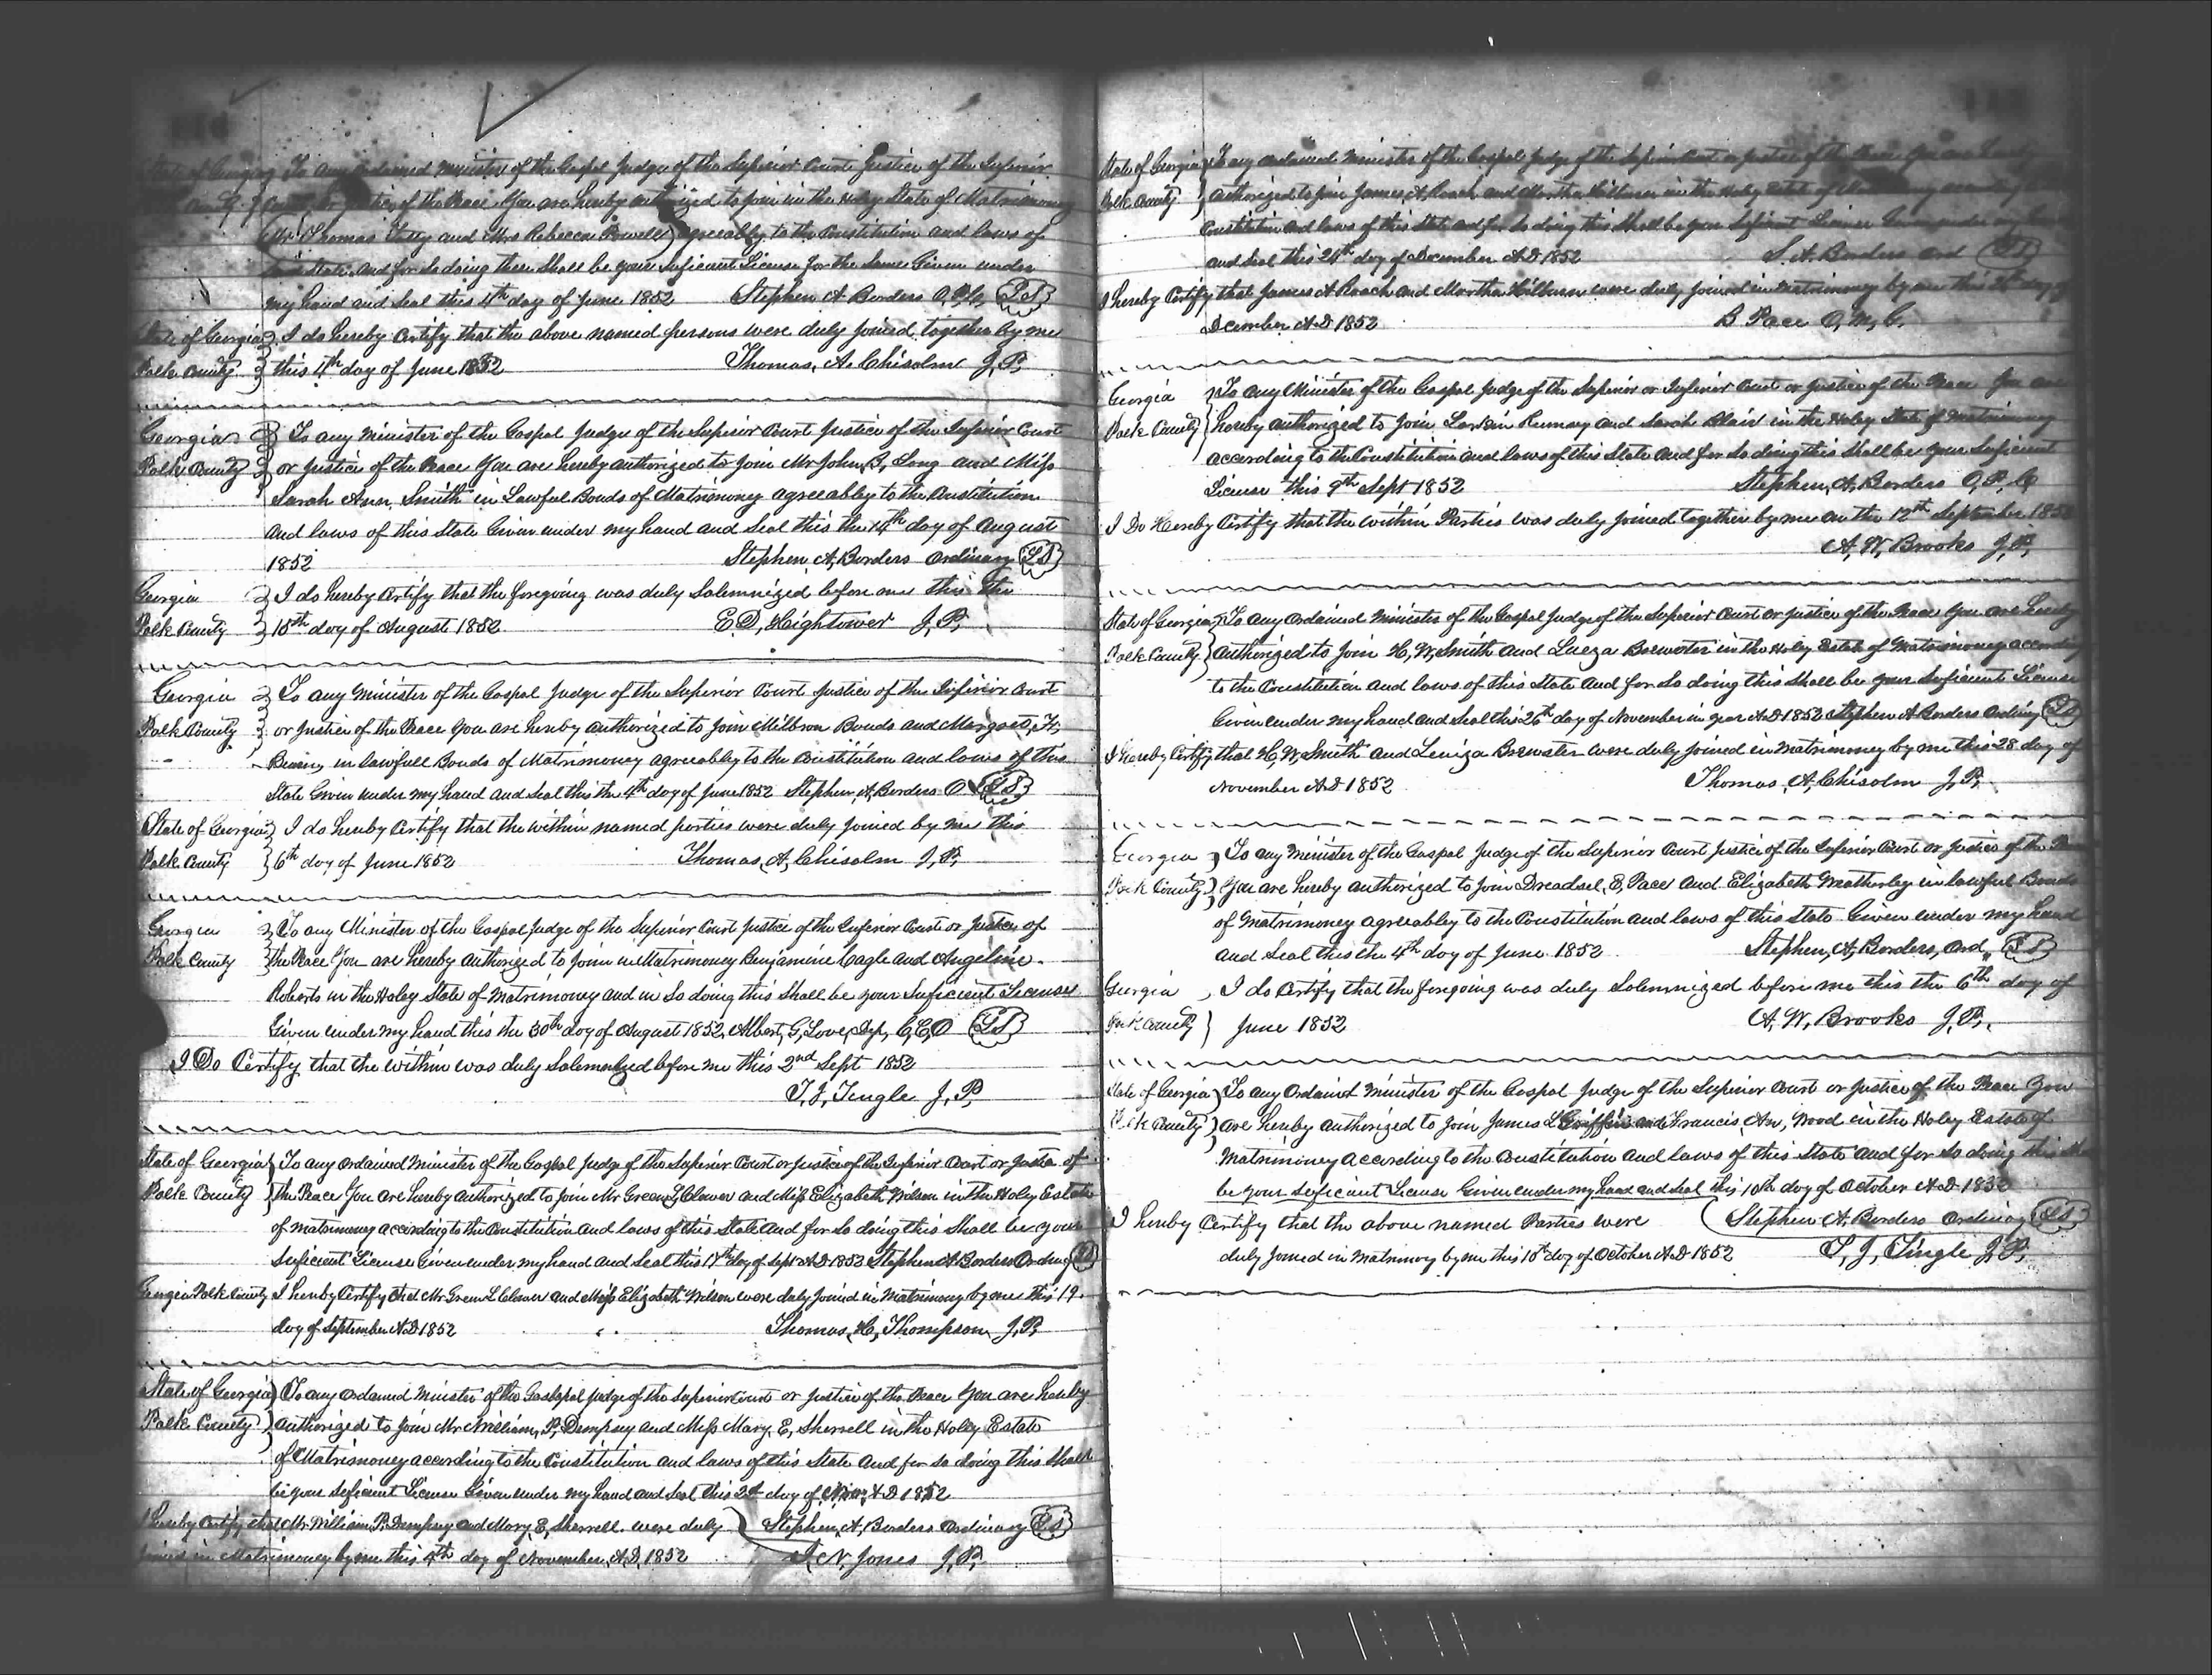 State of Georgia To any ordained Minister of the Gospel Judge of the Superior Court Justice of the Inferior
Court or Justice of the Peace You are hereby authorized to join in the Holey State of Matrimoney
Mr Thomas and Mrs Rebecca Powell agreeably to the Constitution and laws of
this State and for so doing these Shall be your Suficient License for the Same Given under
my hand and Seal this 4th day of June 1852 Stephen A Borders LS
State of Georgia I do hereby Certify that the above named persons were duly joined together by me
Polk County this 4th day of June 1852 Thomas, A. Chisolm J,P,
Georgia To any Minister of the Gospel Judge of the Superior Court Justice of the Inferior Court
Polk County or Justice of the Peace You are hereby authorized to join Mr John, B, Long and Miss
Sarah Ann, Smith in Lawful Bonds of Matrimoney agreeably to the Constitution
and laws of this State Given under my hand and Seal this the 14th day of August
1852 Stephen A, Borders Ordinary LS
Georgia I do hereby Certify that the foregoing was duly Solemnized before me this the
Polk County 15th day of August 1852 E.D, Hightower J,P,
Georgia To any Minister of the Gospel Judge of the Superior Court Justice of the Inferior Court
Polk County or Justice of the Peace You are hereby authorized to join Milbron Bonds and
in lawfull Bonds of Matrimoney agreeably to the Constitution and laws of this
State Given under my hand and Seal this the 4th day of June 1852 Stephen, A, Borders O LS
State of Georgia I do hereby Certify that the within named parties were duly joined by me this
Polk County 6th day of June 1852 Thomas, A, Chisolm J,P,
Georgia To any Minister of the Gospel Judge of the Superior Court Justice of the Inferior Court or Justice of
Polk County the Peace You are hereby authorized to joinn in Matrimoney Benjamine Cagle and Angeline
Roberts in the Holey State of Matrimoney and in So doing this Shall be your Suficient License
Given under my hand this the 30th day of August 1852, Albert, G, Love, Dep, C,C,O LS
I Do Certify that the within was duly Solemnized before me this 2nd Sept 1852
T,J, Tingle J,P,
State of Georgia To any ordained Minister of the Gospel Judge of the Superior Court or Justice of the Inferior Court or Justice of
Polk County the Peace You are hereby authorized to join Mr Green L Clower and Miss Elizabeth Wilson in the Holey Estate
of matrimoney according to the Constitution and laws of this State and for so doing this Shall be your
Suficient License Given under my hand and Seal this 17th day of Sept AD 1852 Stephen A Borders Ordinary LS
Georgia Polk County I hereby Certify that Mr Green L Clower and Miss Elizabeth Wilson were duly joined in Matrimony by me this 19
day of September AD 1852 Thomas, H, Thompson J,P,
State of Georgia To any ordained Minister of the Gospel Judge of the Superior Court or Justice of the Peace You are hereby
Polk County authorized to join Mr William, P, Dempsey and Miss Mary, E, Sherrell in the Holey Estate
of Matrimoney according to the Constitution and laws of this State And for so doing this Shall
be your Suficient License Given under my hand and Seal this 2d day of Nov, AD 1852
I hereby Certify that Mr William, P, Dempsey and Mary, E, Sherrell were duly Stephen, A, Borders Ordinary LS
joined in Matrimoney by me this 4th day of November, A,D, 1852 N, Jones J,P,
State of Georgia To any ordained Minister of the Gospel Judge of the Superior Court or Justice of the Peace You are
Polk County authorized to join James, A, Roach and Martha Hilburn in the Holey Estate of
Constitution and laws of this State and for so doing this Shall be your Suficient License
and Seal this 24th day of December AD 1852 S. A. Borders ord LS
I hereby Certify that James A Roach and Martha Hilburn were duly joined in Matrimoney by me this day of
December AD 1852 B Pace O, M, G.
Georgia To any Minister of the Gospel Judge of the Superior or Inferior Court or Justice of the Peace You are
Polk County hereby authorized to join and Sarah Blair in the Holey State of Matrimoney
according to the Constitution and laws of this State and for so doing this Shall be your Suficient
License this 9th Sept 1852 Stephen, A, Borders O,P,C
I Do Hereby Certify that the within Parties was duly joined together by me on the 12th September 1852
A, W, Brooks J,P,
State of Georgia To any ordained Minister of the Gospel Judge of the Superior Court or Justice of the Peace You are hereby
Polk County authorized to join H, W, Smith and Brewster in the Holey Estate of Matrimoney according
to the Constitution and laws of this State and for so doing this Shall be your Suficient License
Given under my hand and Seal this 26th day of November in year AD 1852 Stephen A Borders Ordinary LS
I hereby Certify that H, W, Smith and Brewster were duly joined in Matrimoney by me this 28 day of
November AD 1852 Thomas, A, Chisolm J,P,
Georgia To any Minister of the Gospel Judge of the Superior Court Justice of the Inferior Court or Justice of the
Polk County You are hereby authorized to join E, Pace and Elizabeth Weatherley in lawful Bonds
of Matrimoney agreeably to the Constitution and laws of this State Given under my hand
and Seal this the 4th day of June 1852 Stephen, A, Borders, ord, LS
Georgia I do Certify that the foregoing was duly Solemnized before me this the 6th day of
Polk County June 1852 A, W, Brooks J,P,
State of Georgia To any Ordained Minister of the Gospel Judge of the Superior Court or Justice of the Peace You
Polk County are hereby authorized to join James L Griffin and Francis, Ann, Wood in the Holey Estate of
Matrimoney according to the Constitution and laws of this State and for so doing this
be your Suficient License Given under my hand and Seal this 10th day of October AD 1852
I hereby Certify that the above named Parties were Stephen A, Borders ordinary LS
duly joined in Matrimony by me this 10th day of October AD 1852 T, J, Tingle J,P,